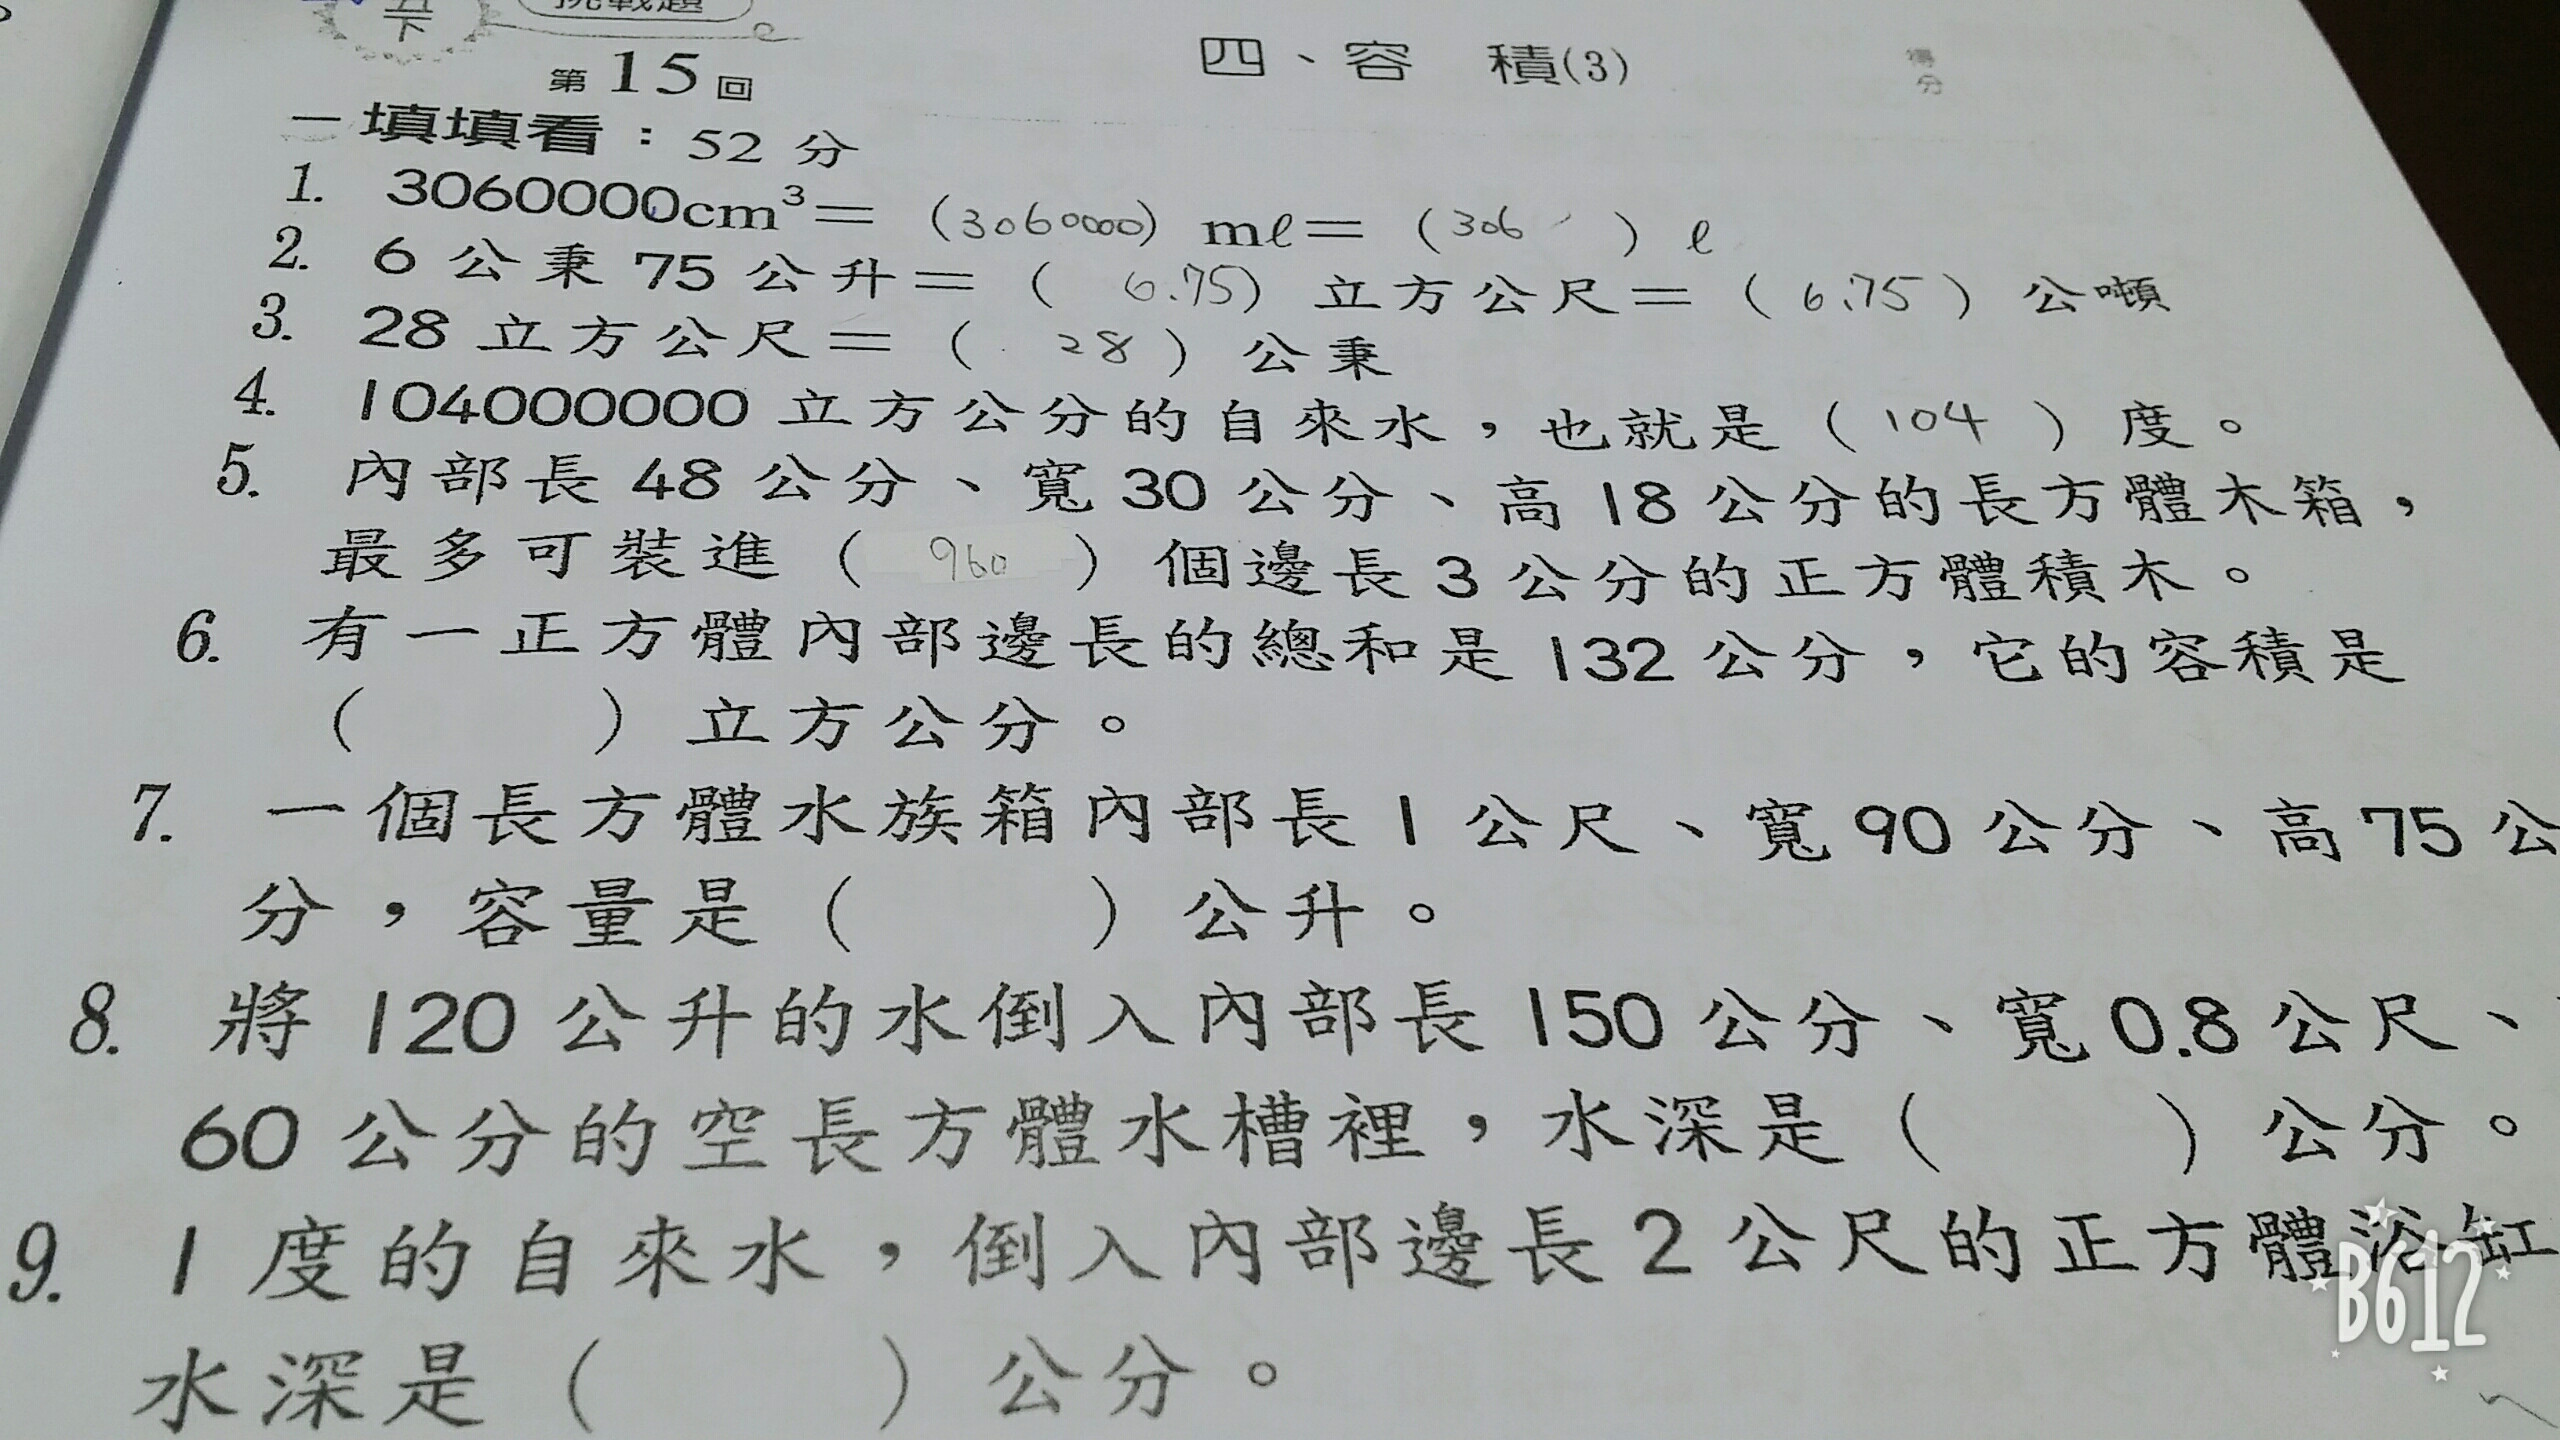 五下 挑戰題
第15回 四、容 積(3) 得分
一填填看：52分
1. 3060000cm³＝(3060000)mℓ＝(306)ℓ
2. 6公秉75公升＝(6.75)立方公尺＝(6.75)公噸
3. 28立方公尺＝(28)公秉
4. 104000000立方公分的自來水，也就是(104)度。
5. 內部長48公分、寬30公分、高18公分的長方體木箱，
最多可裝進(960)個邊長3公分的正方體積木。
6. 有一正方體內部邊長的總和是132公分，它的容積是
( )立方公分。
7. 一個長方體水族箱內部長1公尺、寬90公分、高75公
分，容量是( )公升。
8. 將120公升的水倒入內部長150公分、寬0.8公尺、
60公分的空長方體水槽裡，水深是( )公分。
9. 1度的自來水，倒入內部邊長2公尺的正方體浴缸
水深是( )公分。
B612